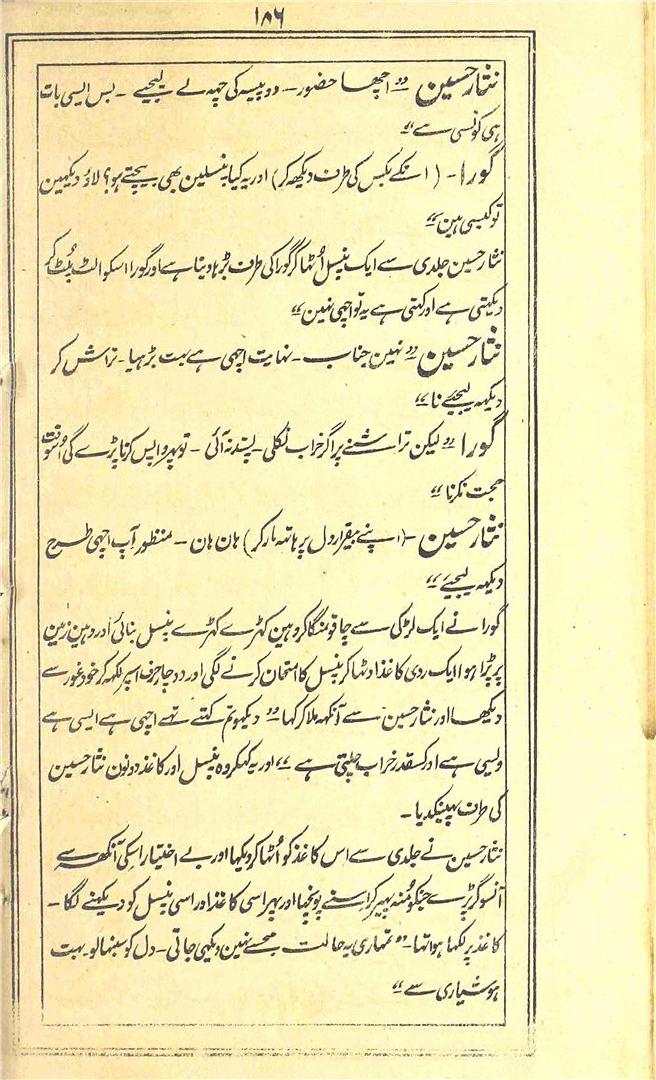 ۱۸۶
نثار حسین ”اچھا حضور ۔ دو پیسہ کی چہہ لے لیجیے ۔ بس ایسی بات
ہی کونسی ہے“
گورا ۔ (انکے بکس کی طرف دیکھ کر) اور یہ کیا پنسلین بھی بیچتے ہو؟ لاؤ دیکہین
تو کیسی ہین“
نثار حسین جلدی سے ایک پنسل اُٹھا کر گورا کی طرف بڑہا دیتا ہے اور گورا اسکو الٹ پُلٹ کے
دیکہتی ہے اور کہتی ہے یہ تو اچہی نہین“
نثار حسین ”نہین جناب ۔ نہایت اچہی ہے بہت بڑہیا ۔ تراش کر
دیکہہ لیجیئے نا“
گورا ”لیکن تراشنے پر اگر خراب نکلی ۔ پسند نہ آئی ۔ تو پہر واپس کرنا پڑے گی اُسوقت
حجت نکرنا“
نثار حسین ۔ (اپنے بیقرار دل پر ہاتہہ مار کر) ہان ہان ۔ منظور آپ اچہی طرح
دیکہہ لیجیئے“
گورا نے ایک لڑکی سے چاقو منگا کر وہین کہڑے کہڑے پنسل بنائی اور وہین زمین
پر پڑا ہوا ایک ردی کاغذ اوٹہا کر پنسل کا امتحان کرنے لگی اور دو چار حرف اسپر لکہہ کر خود غور سے
دیکھا اور نثار حسین سے آنکہہ ملا کر کہا ”دیکہو تم کہتے تہے اچہی ہے ایسی ہے
ویسی ہے اور کسقدر خراب چلتی ہے“ اور یہ کہکر وہ پنسل اور کاغذ دونون نثار حسین
کی طرف پہینکدیا ۔
نثار حسین نے جلدی سے اس کاغذ کو اُٹھا کر دیکہا اور بے اختیار اسکی آنکھہ سے
آنسو گر پڑے جنکو مُنہ پہیر کر اسنے پونچہا اور پہر اسی کاغذ اور اسی پنسل کو دیکہنے لگا ۔
کاغذ پر لکہا ہوا تہا ۔ ”تمہاری یہ حالت مجہسے نہین دیکہی جاتی ۔ دل کو سنبہالو ۔ بہت
ہوشیاری سے“